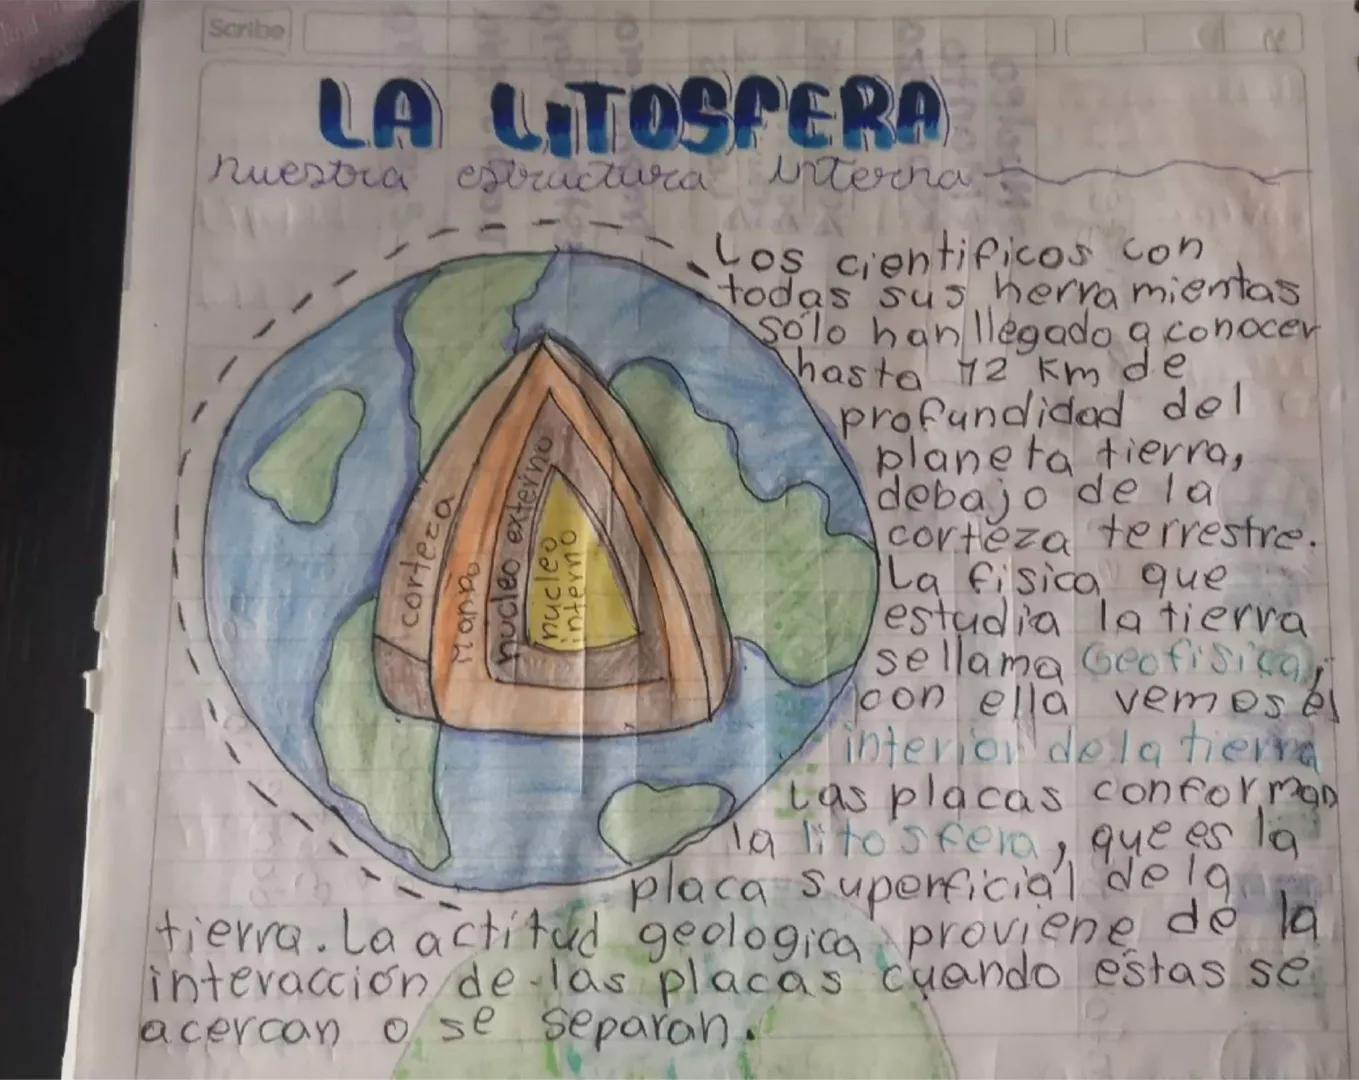 Scribe
LA LITOSFERA
nuestra estructura interna
Los cientificos con
todas sus herramientas
sólo han llegado a conocer
hasta 12 Km de
profundidad del
planeta tierra,
debajo de la
corteza terrestre.
La fisica que
estudia la tierra
se llama Geofisica,
con ella vemos el
interior de la tierra
Las placas conforman
la litosfera, que es la
placa superficial de la
tierra. La actitud geologica proviene de la
interacción de las placas cuando estas se
acercan o se separan.
corteza
Manto
nucleo externo
nucleo
interno